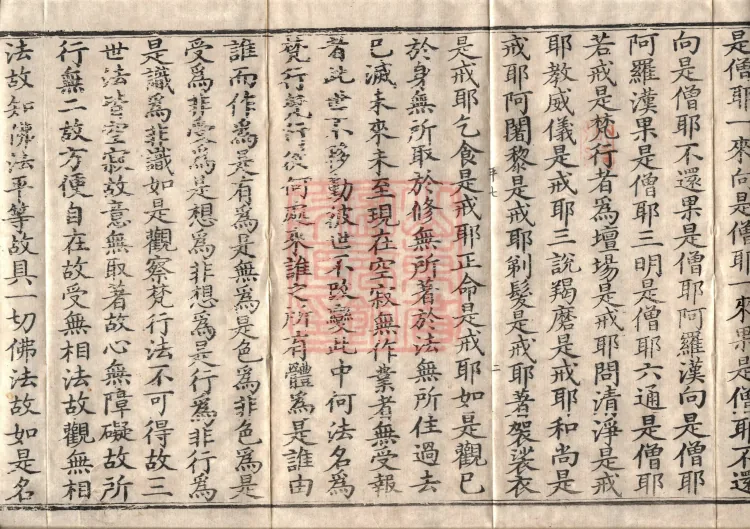 是僧耶一來向是僧耶一來果是僧耶不還
向是僧耶不還果是僧耶阿羅漢向是僧耶
阿羅漢果是僧耶三明是僧耶六通是僧耶
若戒是梵行者爲壇場是戒耶問清淨是戒
耶教威儀是戒耶三說羯磨是戒耶和尚是
戒耶阿闍黎是戒耶剃髮是戒耶著袈裟衣
平七 二
是戒耶乞食是戒耶正命是戒耶如是觀已
於身無所取於修無所著於法無所住過去
已滅未來未至現在空寂無作業者無受報
者此世不移動彼世不改變此中何法名爲
梵行梵行從何處來誰之所有體爲是誰由
誰而作爲是有爲是無爲是色爲非色爲是
受爲非受爲是想爲非想爲是行爲非行爲
是識爲非識如是觀察梵行法不可得故三
世法皆空寂故意無取著故心無障礙故所
行無二故方便自在故受無相法故觀無相
法故知佛法平等故具一切佛法故如是名